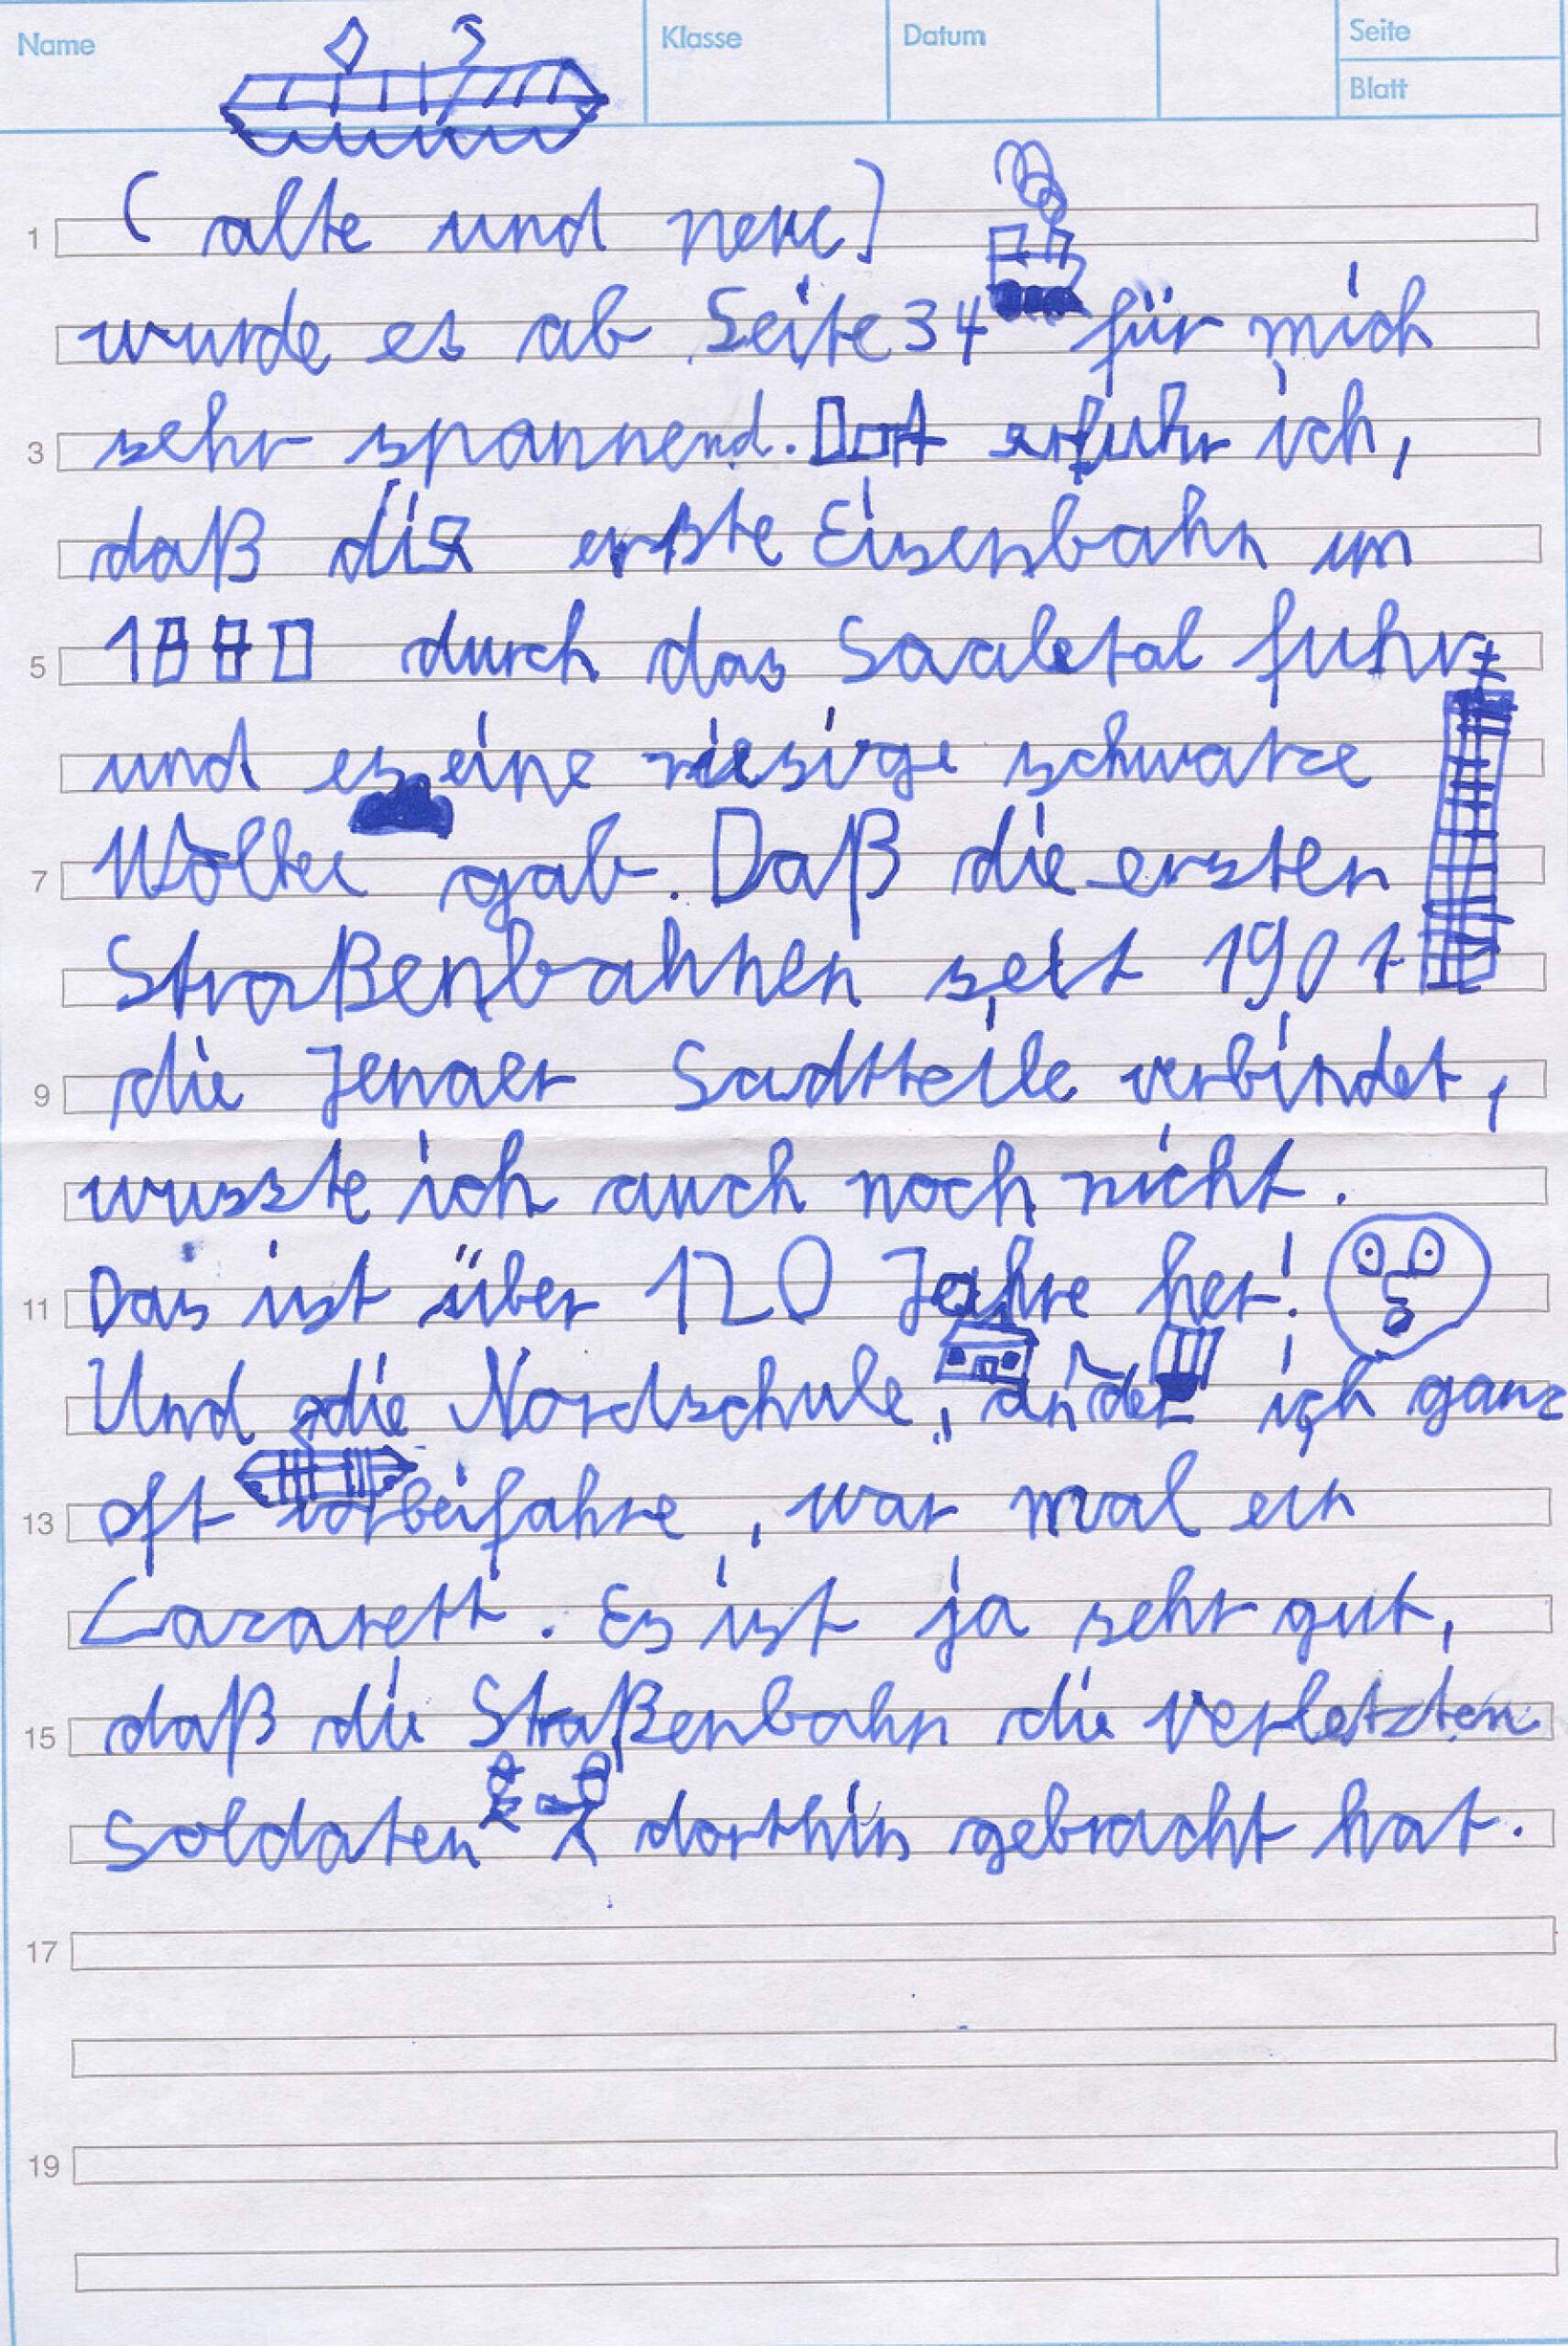 Name Klasse Datum Seite
Blatt
1 (alte und neue)
wurde es ab Seite 34 für mich
3 sehr spannend. Dort erfuhr ich,
daß die erste Eisenbahn um
5 1880 durch das Saaletal fuhr
und es eine riesige schwarze
7 Wolke gab. Daß die ersten
Straßenbahnen seit 1901
9 die Jenaer Sadtteile verbindet,
wusste ich auch noch nicht.
11 Das ist über 120 Jahre her!
Und die Nordschule, an der ich ganz
13 oft vorbeifahre, war mal ein
Lazarett. Es ist ja sehr gut,
15 daß die Straßenbahn die verletzten
Soldaten dorthin gebracht hat.
17
19